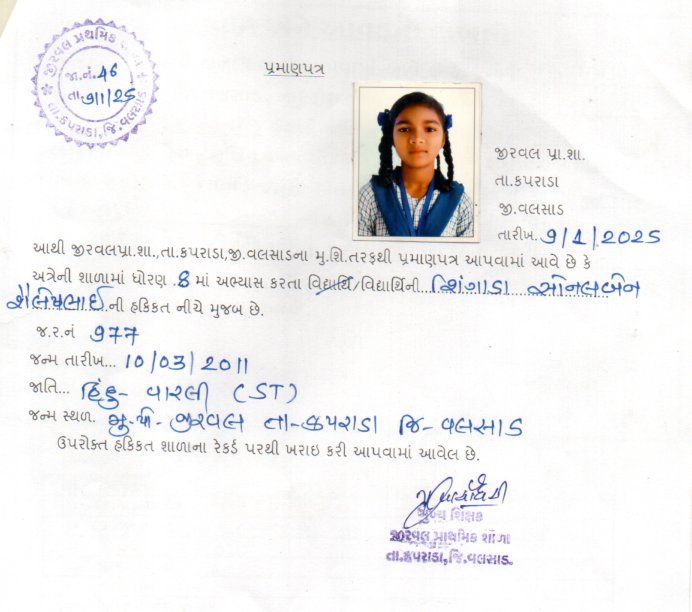 જીરવલ પ્રાથમિક શાળા
જા.નં. 46
તા.કપરાડા, જિ.વલસાડ
પ્રમાણપત્ર
જીરવલ પ્રા.શા.
તા.કપરાડા
જી.વલસાડ
તારીખ. 9/1/2025
આથી જીરવલપ્રા.શા.,તા.કપરાડા,જી.વલસાડના મુ.શિ.તરફથી પ્રમાણપત્ર આપવામાં આવે છે કે
અત્રેની શાળામાં ધોરણ .8 માં અભ્યાસ કરતા વિદ્યાર્થિ/વિદ્યાર્થિની... શિંગાડા સોનલબેન
શૈલેષભાઈ ની હકિકત નીચે મુજબ છે.
જ.ર.નં 977
જન્મ તારીખ... 10/03/2011
જાતિ... હિંદુ- વારલી (ST)
જન્મ સ્થળ. મુ.પો- જીરવલ તા-કપરાડા જિ-વલસાડ
ઉપરોક્ત હકિકત શાળાના રેકર્ડ પરથી ખરાઇ કરી આપવામાં આવેલ છે.
મુખ્ય શિક્ષક
જીરવલ પ્રાથમિક શાળા
તા.કપરાડા,જિ.વલસાડ.